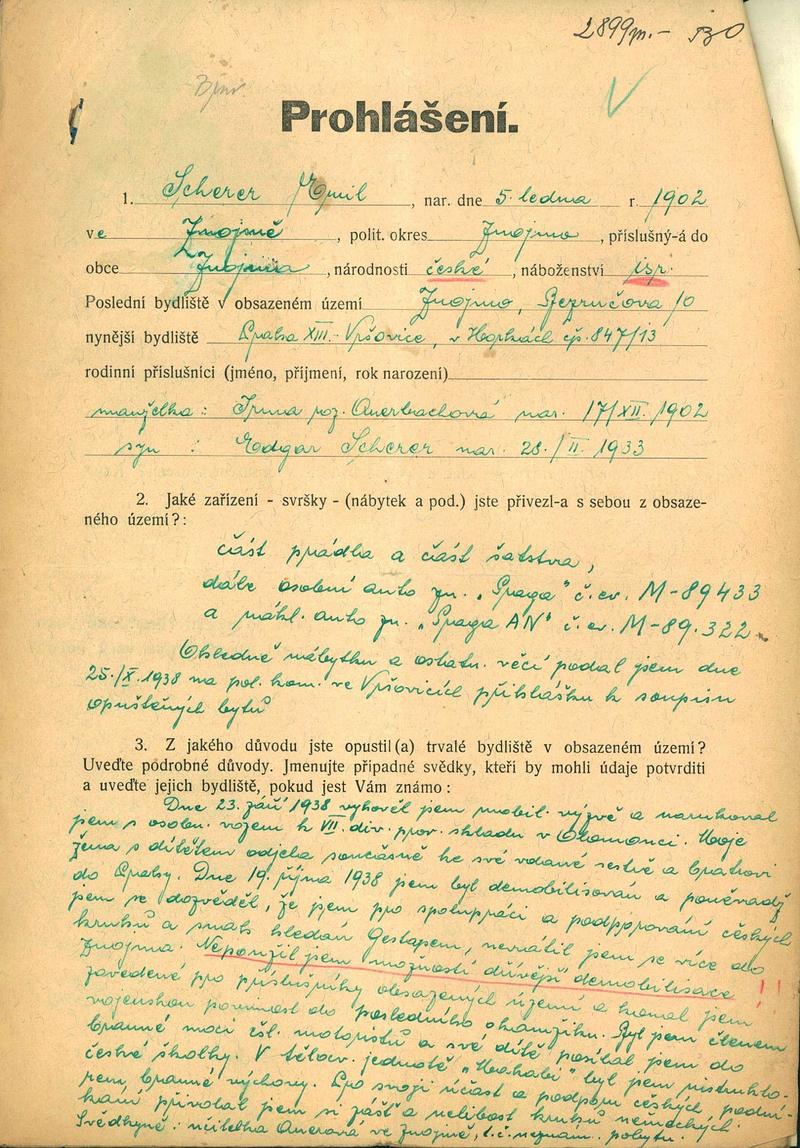 2899
Prohlášení.
1. Scherer Emil, nar. dne 5. ledna r. 1902
ve Znojmě, polit. okres Znojmo, příslušný-á do
obce Znojma, národnosti české, náboženství izr.
Poslední bydliště v obsazeném území Znojmo, Bezručova 10
nynější bydliště Praha XIII. - Vršovice, v Horkách čp. 847/13
rodinní příslušníci (jméno, příjmení, rok narození)
manželka: Irma roz. Auerbachová nar. 17/XII. 1902
syn : Edgar Scherer nar. 28./II. 1933
2. Jaké zařízení - svršky - (nábytek a pod.) jste přivezl-a s sebou z obsaze-
ného území?:
část prádla a část šatstva,
dále osobní auto zn. „Praga" č. ev. M-89433
a nákl. auto zn. „Praga AN" č. ev. M-89.322
Ohledně nábytku a ostatn. věcí podal jsem dne
25./X. 1938 na pol. kom. ve Vršovicích přihlášku k soupisu
opuštěných bytů
3. Z jakého důvodu jste opustil(a) trvalé bydliště v obsazeném území?
Uveďte podrobné důvody. Jmenujte případné svědky, kteří by mohli údaje potvrditi
a uveďte jejich bydliště, pokud jest Vám známo:
Dne 23. září 1938 vyhověl jsem mobil. výzvě a narukoval
jsem s osobn. vozem k VII. div. prov. skladu v Olomouci. Moje
žena s dítětem odjela současně ke své vdané sestře a
do Prahy. Dne 19. října 1938 jsem byl demobilisován a poněvadž
jsem se dozvěděl, že jsem pro spolupráci a podporování českých
kruhů a snah hledán Gestapem, nevrátil jsem se více do
Znojma. Nepoužil jsem možnosti dřívější demobilisace !!
zavedené pro příslušníky obsazených území a konal jsem
vojenskou povinnost do posledního okamžiku. Byl jsem členem
branné moci čsl. motoristů a své dítě posílal jsem do
české školky. V tělocv. jednotě „Makabi" byl jsem instrukto-
rem branné výchovy. Pro svoji účast a podporu českých podni-
kání přivolal jsem si zášť a nelibost kruhů německých.
Svědkyně: učitelka Auerová ve Znojmě, t. č. neznám. pobytu